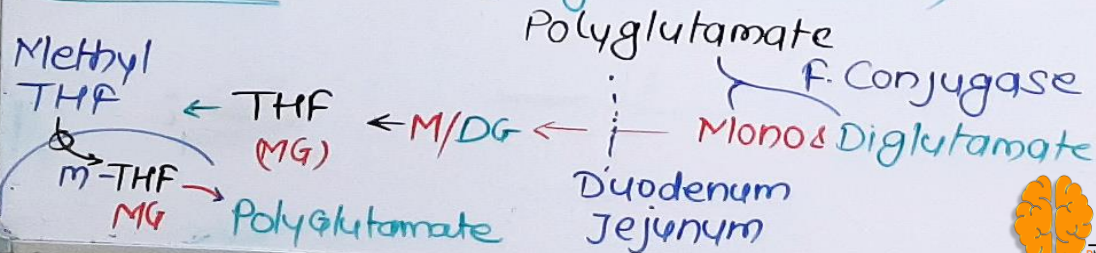 Polyglutamate
F. Conjugase
Methyl
THF ← THF ← M/DG ← Mono & Diglutamate
(MG)
m-THF → Polyglutamate
MG
Duodenum
Jejunum